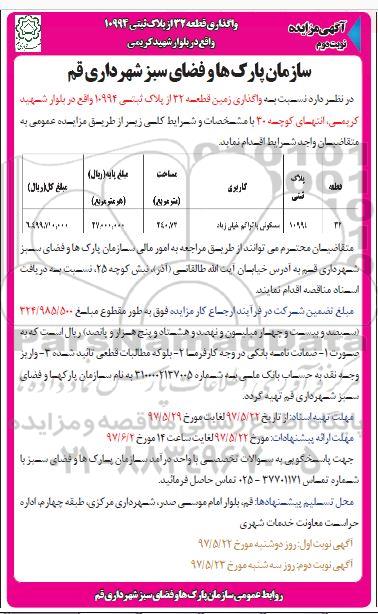 آگهی مزایده
نوبت دوم
واگذاری قطعه ۳۲ از پلاک ثبتی ۱۰۹۹۴
واقع در بلوار شهید کریمی
سازمان پارک ها و فضای سبز شهرداری قم
در نظر دارد نسبت به واگذاری زمین قطعه ۳۲ از پلاک ثبتی ۱۰۹۹۴ واقع در بلوار شهید
کریمی، انتهای کوچه ۳۰ با مشخصات و شرایط کلی زیر از طریق مزایده عمومی به
متقاضیان واجد شرایط اقدام نماید.
قطعه پلاک ثبتی کاربری مساحت (مترمربع) مبلغ پایه(ریال) (هر مترمربع) مبلغ کل(ریال)
۳۲ ۱۰۹۹۴ مسکونی با تراکم خیلی زیاد ۲۴۰,۷۳ ۲۷,۰۰۰,۰۰۰ ۶,۴۹۹,۷۱۰,۰۰۰
متقاضیان محترم می توانند از طریق مراجعه به امور مالی سازمان پارک ها و فضای سبز
شهرداری قم به آدرس خیابان آیت الله طالقانی (آذر)، نبش کوچه ۲۵، نسبت به دریافت
اسناد مناقصه اقدام نمایند.
مبلغ تضمین شرکت در فرآیند ارجاع کار مزایده فوق به طور مقطوع مبلغ ۳۲۴/۹۸۵/۵۰۰
(سیصد و بیست و چهار میلیون و نهصد و هشتاد و پنج هزار و پانصد) ریال است که به
صورت ۱- ضمانت نامه بانکی در وجه کارفرما ۲- بلوکه مطالبات قطعی تائید شده ۳- واریز
وجه نقد به حساب بانک ملی به شماره ۳۱۰۰۰۰۲۱۳۷۰۰۵ به نام سازمان پارکها و فضای
سبز شهرداری قم تهیه گردد.
مهلت تهیه اسناد: از تاریخ ۹۷/۵/۲۲ لغایت مورخ ۹۷/۵/۲۹
مهلت ارائه پیشنهادات: مورخ ۹۷/۵/۲۲ لغایت ساعت ۱۴ مورخ ۹۷/۶/۲
جهت پاسخگویی به سوالات تخصصی با واحد درآمد سازمان پارک ها و فضای سبز با
شماره تماس ۳۷۷۰۱۱۷۱ - ۰۲۵ تماس حاصل فرمائید.
محل تسلیم پیشنهادها: قم، بلوار امام موسی صدر، شهرداری مرکزی، طبقه چهارم، اداره
حراست معاونت خدمات شهری
آگهی نوبت اول: روز دوشنبه مورخ ۹۷/۵/۲۲
آگهی نوبت دوم: روز سه شنبه مورخ ۹۷/۵/۲۳
روابط عمومی سازمان پارک ها و فضای سبز شهرداری قم